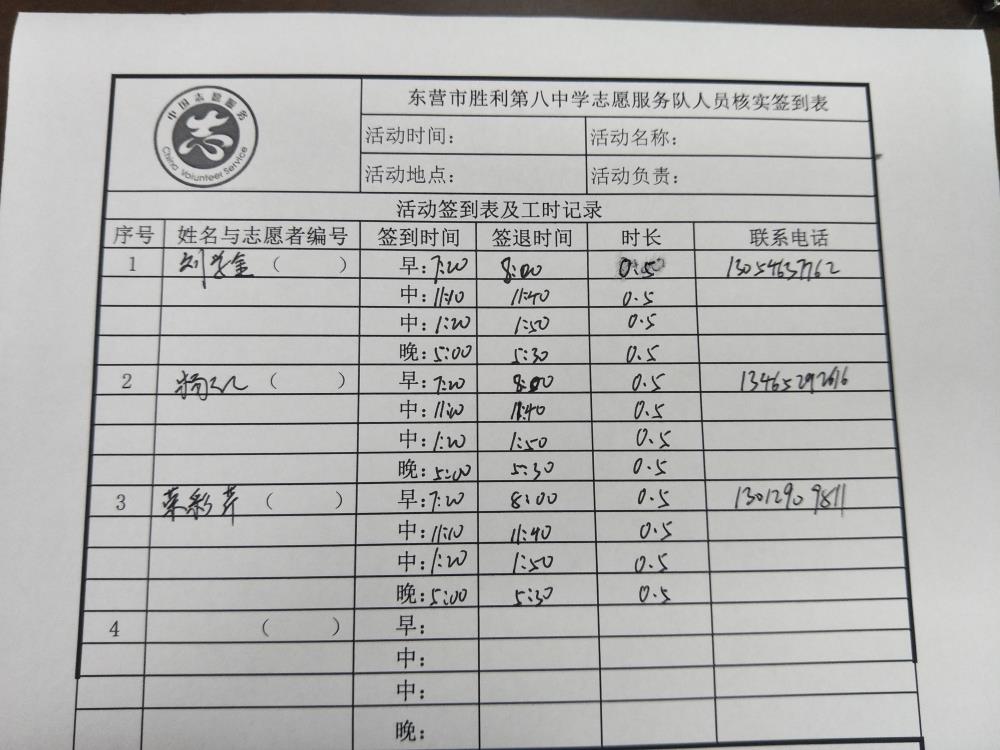 中国志愿服务
China Volunteer Service
东营市胜利第八中学志愿服务队人员核实签到表
活动时间: 活动名称:
活动地点: 活动负责:
活动签到表及工时记录
序号 姓名与志愿者编号 签到时间 签退时间 时长 联系电话
1 刘学金 ( ) 早:7:20 8:00 0.5 13054637762
中:11:10 11:40 0.5
中:1:20 1:50 0.5
晚:5:00 5:30 0.5
2 ( ) 早:7:20 8:00 0.5
中:11:10 11:40 0.5
中:1:20 1:50 0.5
晚:5:00 5:30 0.5
3 荣彩芹 ( ) 早:7:20 8:00 0.5 13012909811
中:11:10 11:40 0.5
中:1:20 1:50 0.5
晚:5:00 5:30 0.5
4 ( ) 早:
中:
中:
晚: